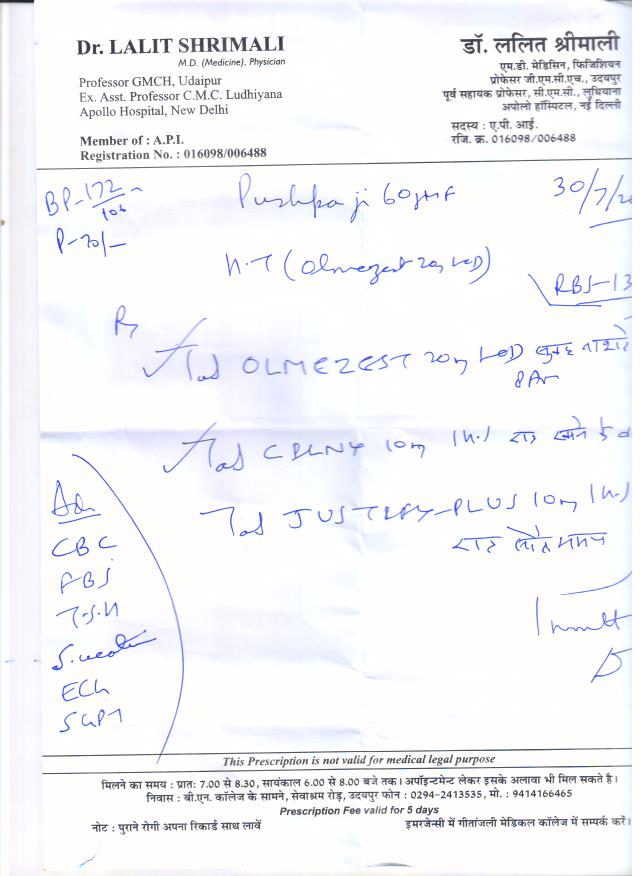 Dr. LALIT SHRIMALI
M.D. (Medicine), Physician
Professor GMCH, Udaipur
Ex. Asst. Professor C.M.C. Ludhiyana
Apollo Hospital, New Delhi
Member of : A.P.I.
Registration No. : 016098/006488
डॉ. ललित श्रीमाली
एम.डी. मेडिसिन, फिजिशियन
प्रोफेसर जी.एम.सी.एच., उदयपुर
पूर्व सहायक प्रोफेसर, सी.एम.सी., लुधियाना
अपोलो हॉस्पिटल, नई दिल्ली
सदस्य : ए.पी. आई.
रजि. क्र. 016098/006488
BP-172/106
Pushpa ji 60 F
30/7/20
P-70/-
(Olmezest 20
RBS-13
Tab OLMEZEST 20 सुबह
8 AM
Tab 10 रात खाने के
Tab PLUS 10
रात सोते समय
Adv
CBC
FBS
T.S.H
ECG
SGPT
1 month
This Prescription is not valid for medical legal purpose
मिलने का समय : प्रातः 7.00 से 8.30, सायंकाल 6.00 से 8.00 बजे तक। अपॉइन्टमेन्ट लेकर इसके अलावा भी मिल सकते है।
निवास : बी.एन. कॉलेज के सामने, सेवाश्रम रोड़, उदयपुर फोन : 0294-2413535, मो. : 9414166465
Prescription Fee valid for 5 days
नोट : पुराने रोगी अपना रिकार्ड साथ लावें
इमरजेन्सी में गीतांजली मेडिकल कॉलेज में सम्पर्क करें।